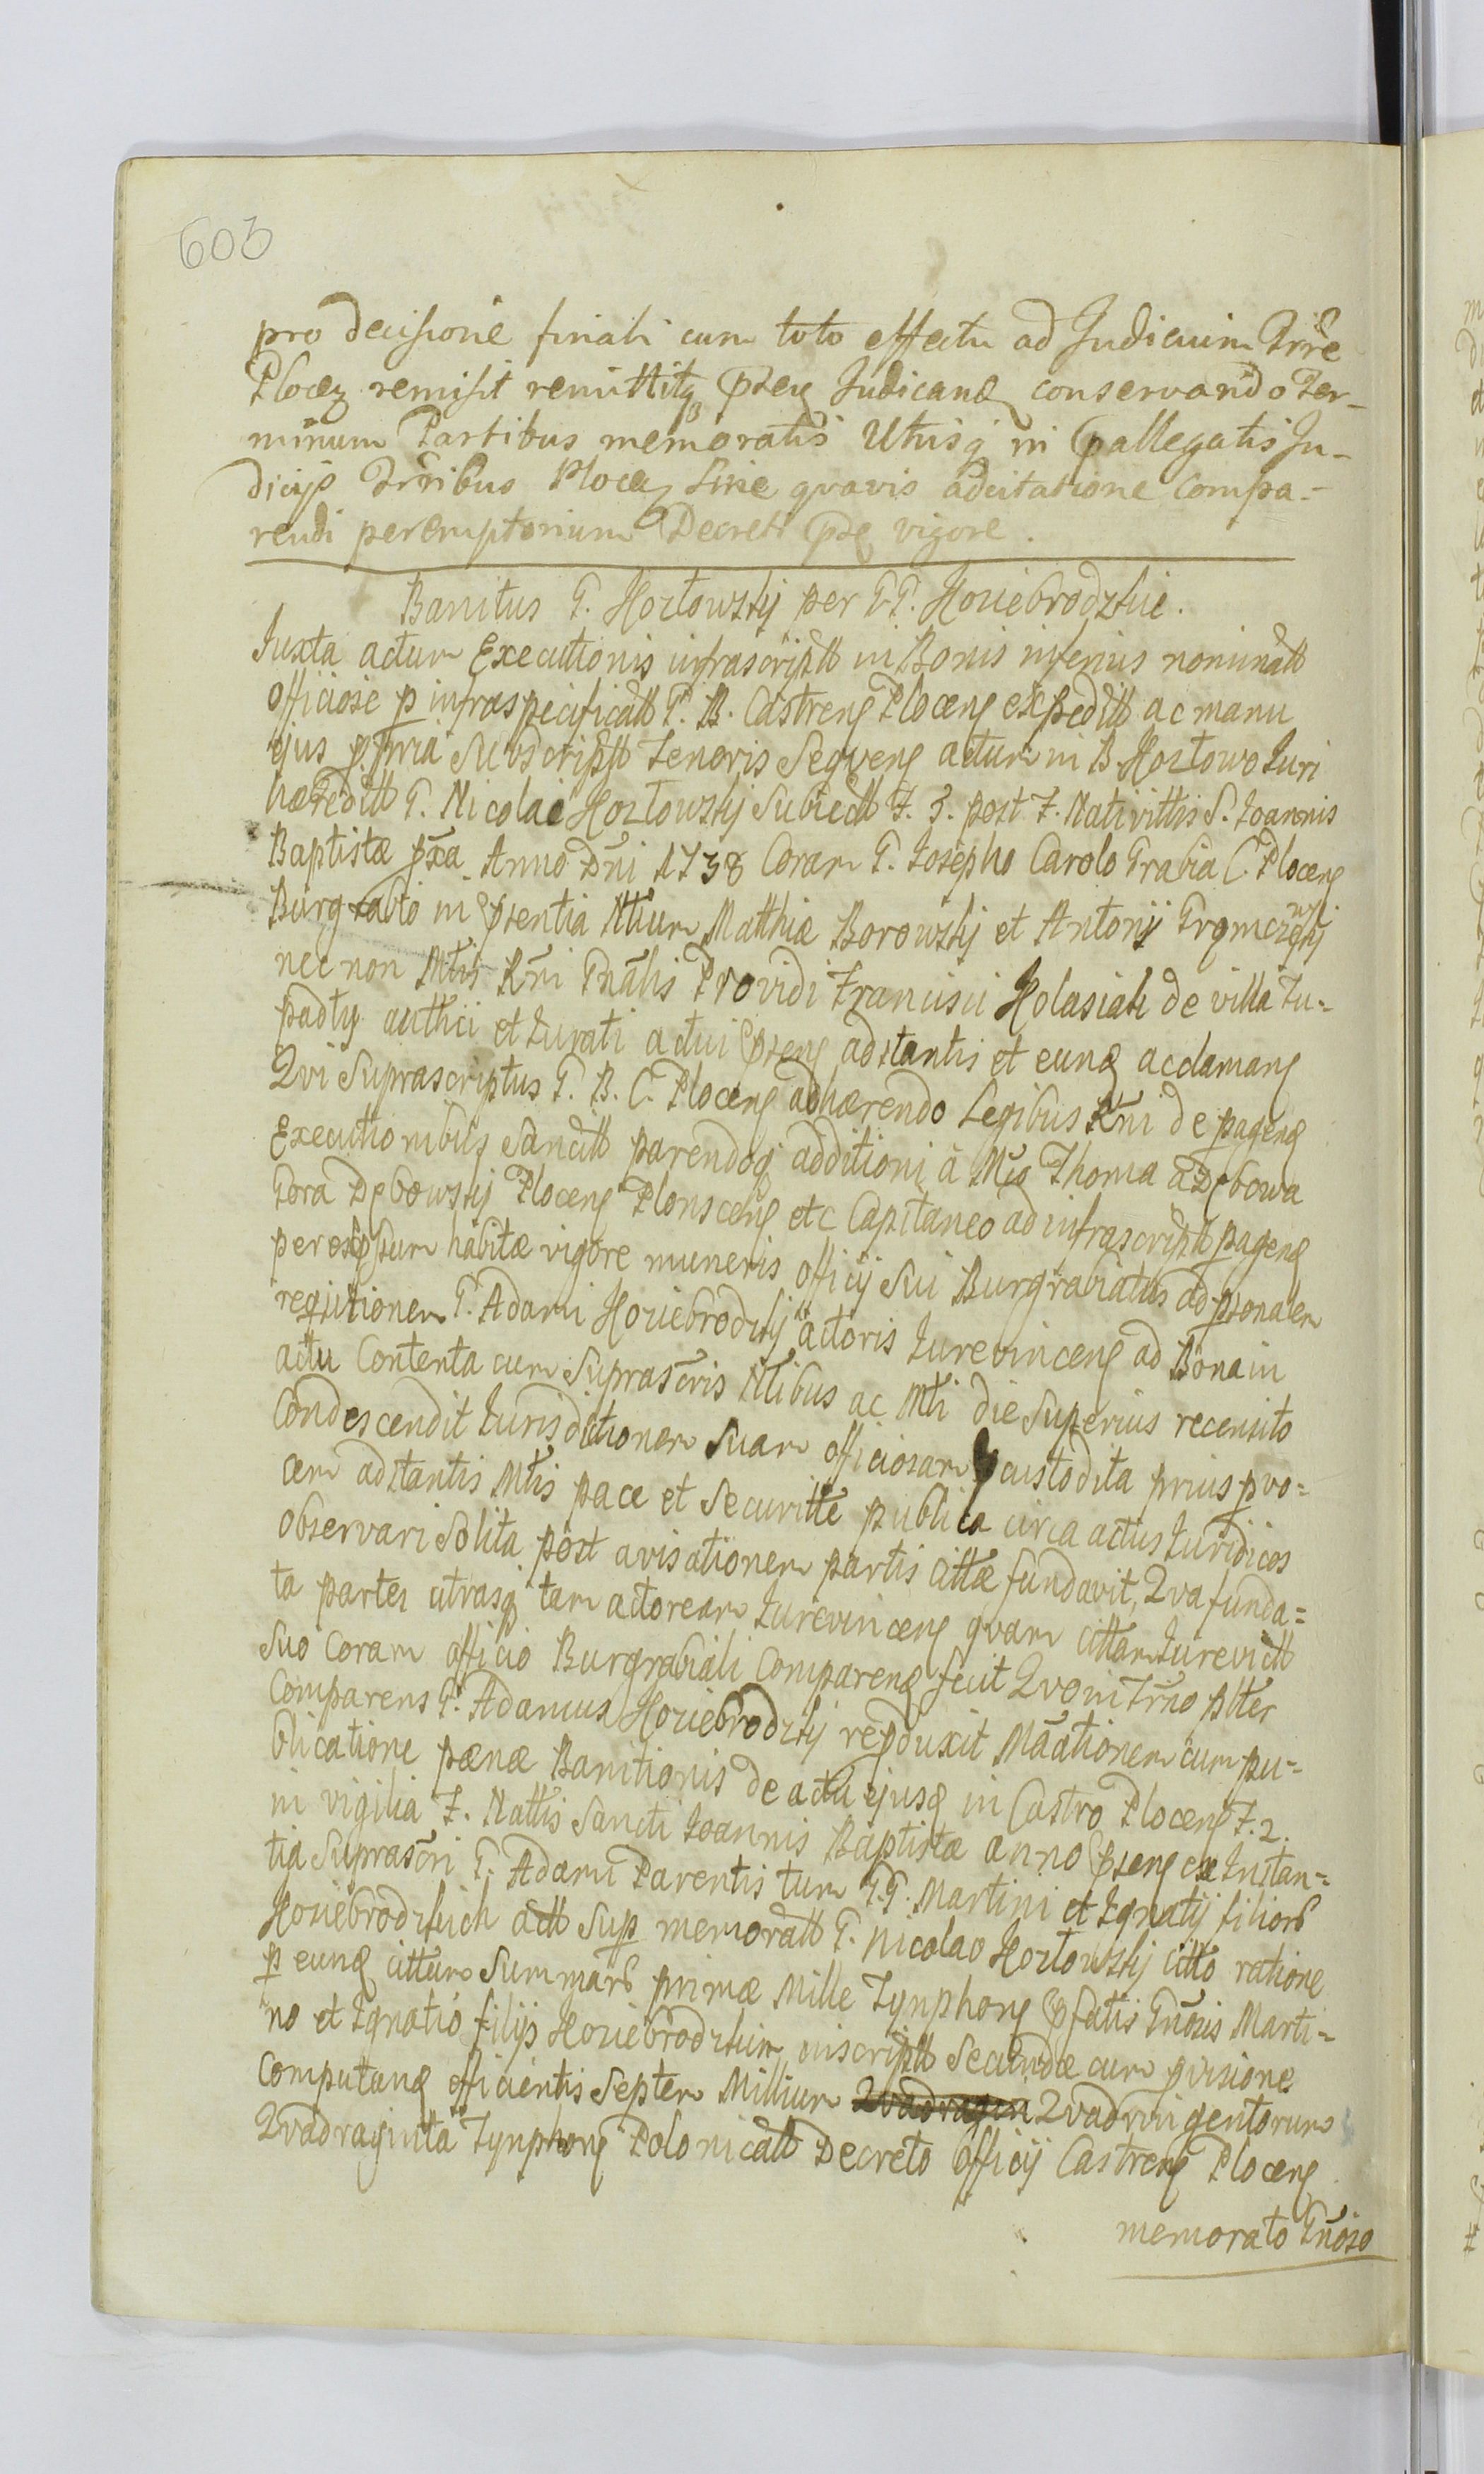 603
pro decisione finali cum toto effectu ad Judicium Trre
Plocen remisit remittitq psen Judicand conservando Ter-
minum Partibus memoratis Utrisq in pallegatis Ju-
dicijs Trribus Plocen Sine qvavis adcitatione Compa-
rendi peremptorium Decreti psq vigore.
Banitus G. Kozłowskij per GG. Koziebrodzkie.
Juxta actum Executionis infrascriptt in Bonis inferius nominatt
officiose p infraspecificatt G. B. Castrenq Plocenq expeditt ac manu
ejus ppria Subscriptt Tenoris Seqvenq actum in B. Kozłowo Juri
hæreditt G. Nicolai Kozłowskij Subiectt F. 3. post F. Nativittis S. Joannis
Baptistæ pxa Anno Dni 1738 Coram G. Josepho Carolo Grabia C. Plocenq
Burgrabio in psentia Nttium Matthiæ Borowskij et Antonij
nec non Mtis Rni Gnalis Providi Francisci Kolasiak de villa Tu-
padły autthci et Jurati actui psenq adstantis et eund acclamanq
Qvi Suprascriptus G. B. C. Plocenq adhærendo Legibus Rni de pagend
Executionibus Sancitt parendoq additioni à Mco Thoma à Dębowa
Gora Dębowskij Plocenq Plonscenq etc Capitaneo ad infrascriptt pagend
per habitæ vigore muneris officij Sui Burgrabiatus ad psonalem
reqsitionem G. Adami Koziebrodzkij actoris Jurevincenq ad Bona in
actu Contenta cum Suprascris Nttibus ac Mtti die Superius recensito
Condescendit Jurisdictionem Suam officiosam custodita prius pvo-
cem adstantis Mtis pace et Securitte publica circa actus Juridicos
observari Solita post avisationem partis cittæ fundavit, Qva funda-
ta partes utrasq tam actoream Jurevincenq qvam cittam Jurevictt
Suo Coram officio Burgrabiali Comparend fecit Qvo in Trno pltter
Comparens G. Adamus Koziebrodzkij repduxit Maationem cum pu-
blicatione pænæ Banitionis de actu ejusd in Castro Plocenq F. 2.
in vigilia F. Nattis Sancti Joannis Baptistæ anno psenq ex Instan-
tia Suprascri G. Adami Parentis tum G.G. Martini et Ignatij filiors
Koziebrodzkich actt Sup memoratt G. Nicolao Kozłowskij citto ratione
p eund cittum Summars primæ Mille Tynphonq pfatis Gnosis Marti-
no et Ignatio filijs Koziebrodzkim inscriptt Secundæ cum pvisione
Computand efficientis Septem Millium Qvadragin Qvadringentorum
Qvadraginta Tynphonq Polonicatt Decreto Officij Castrenq Plocenq
memorato Gnoso